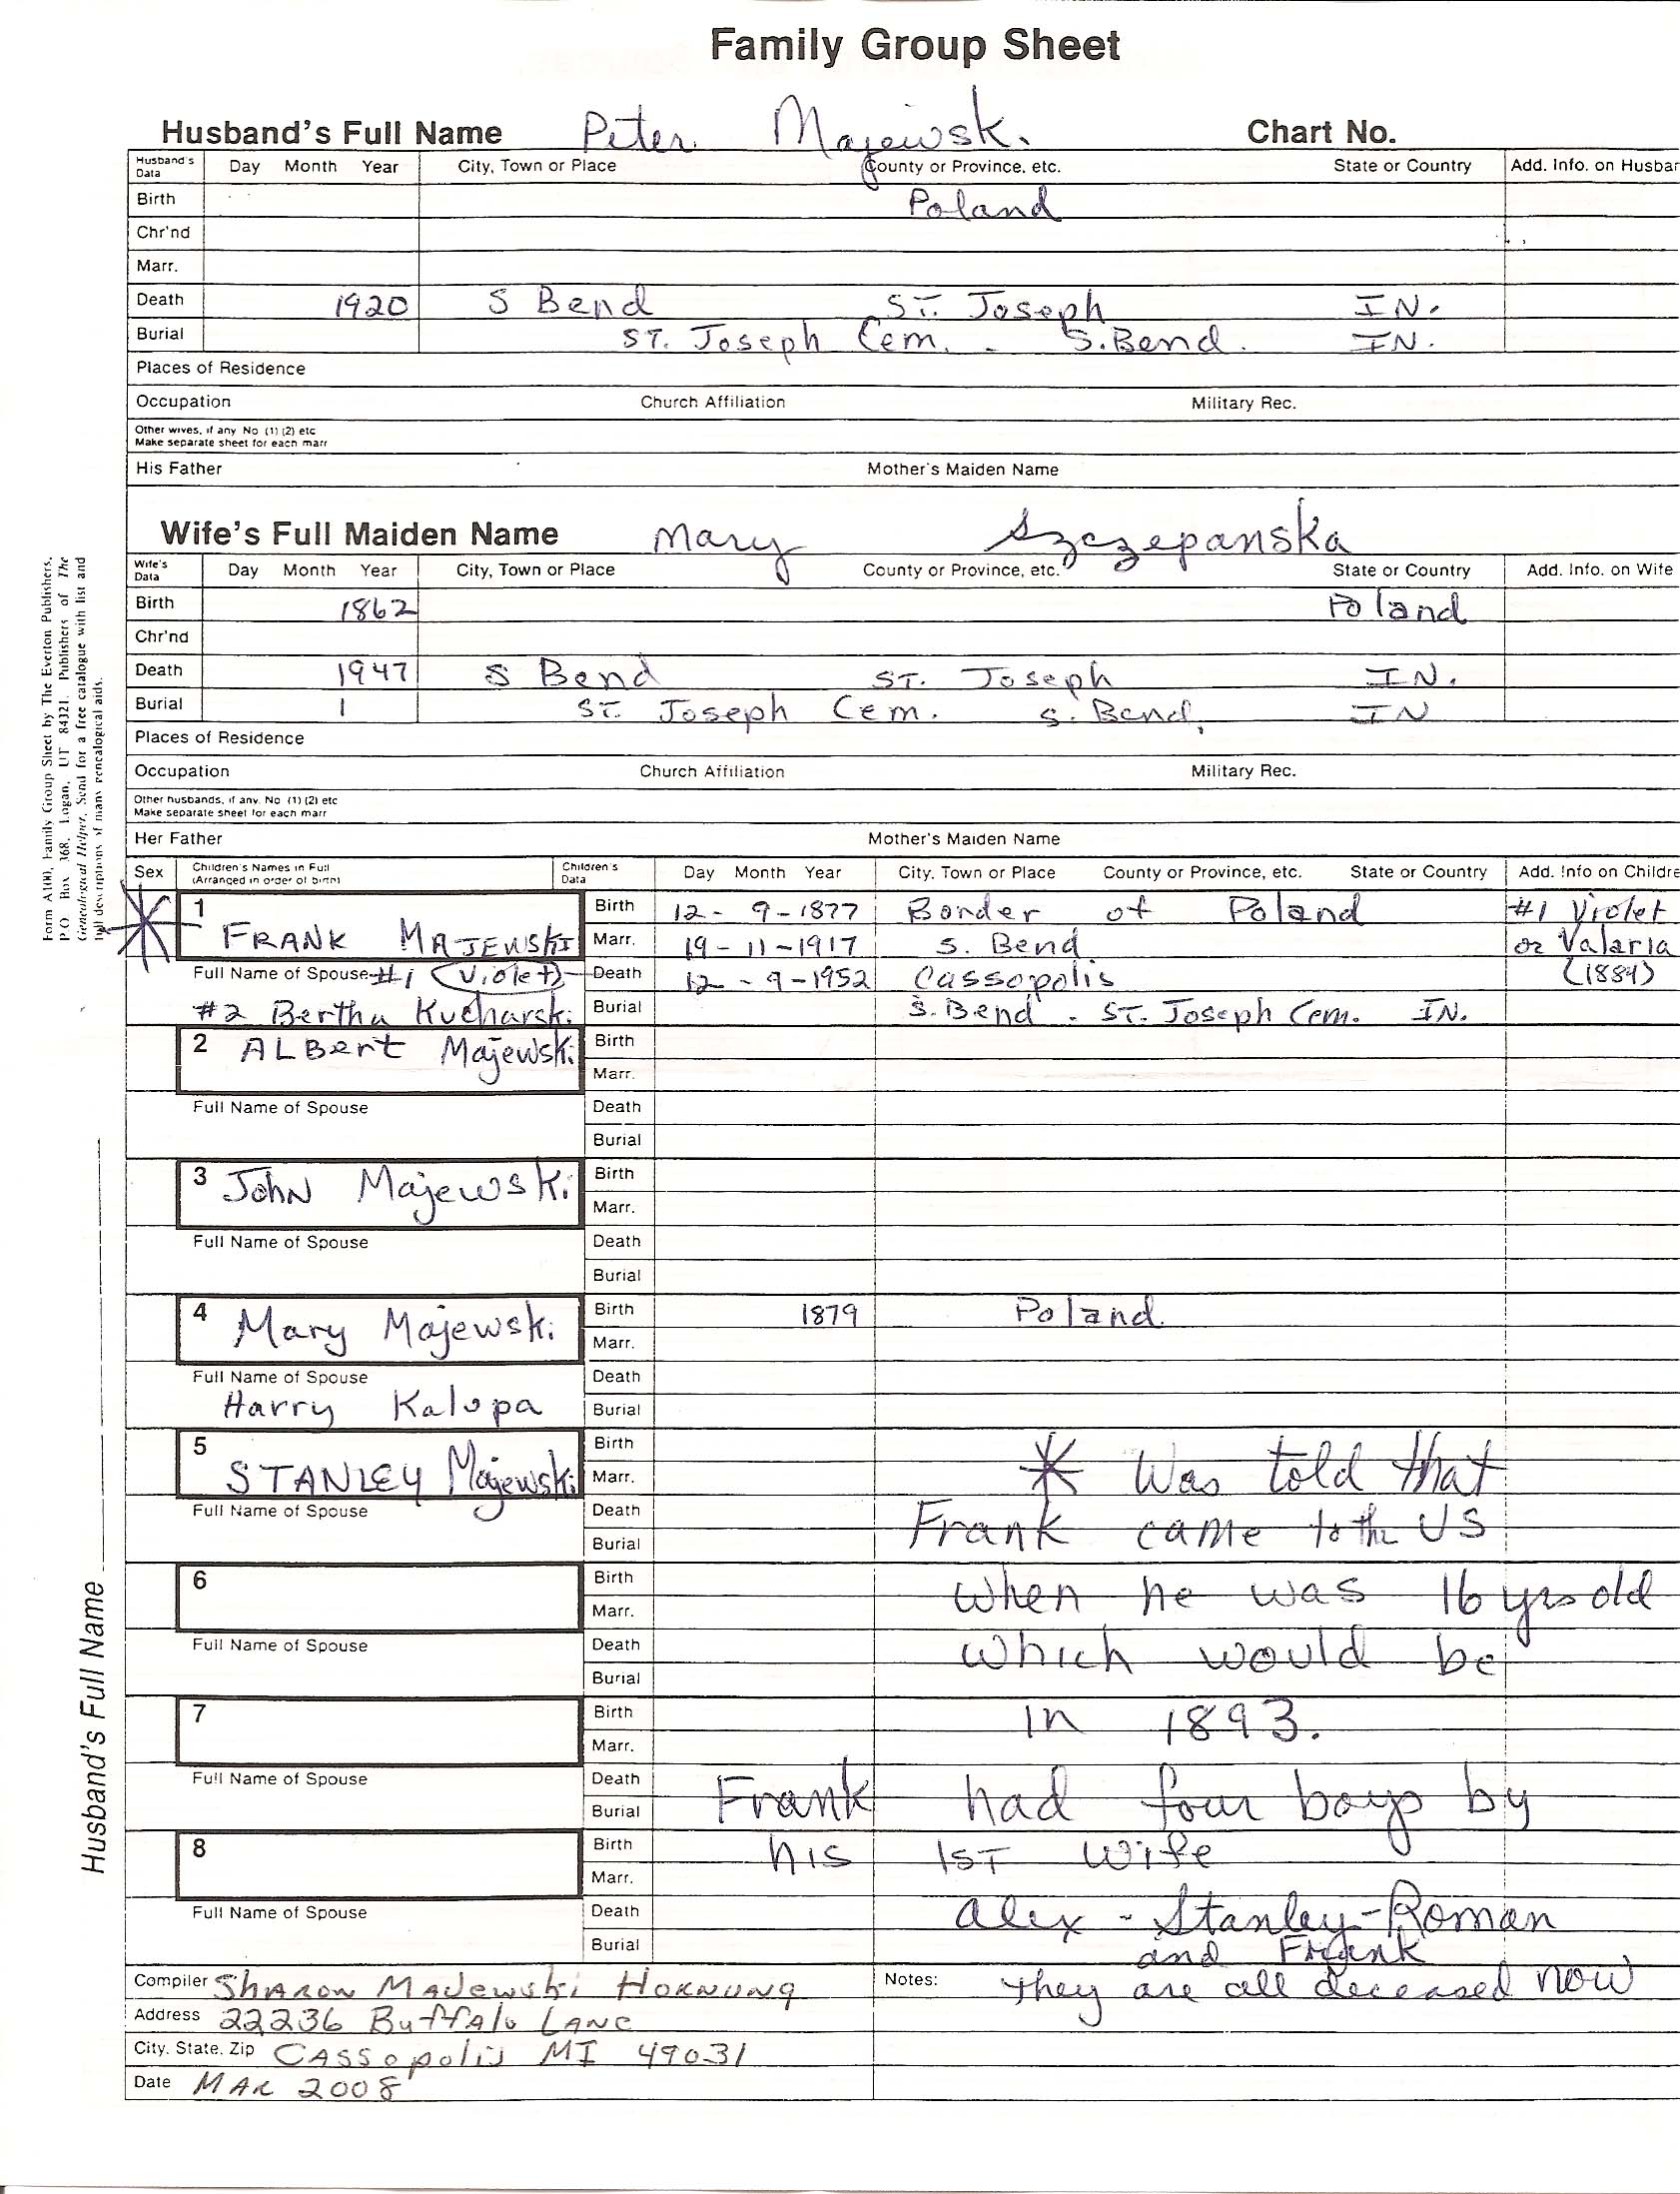 Family Group Sheet
Husband's Full Name Peter Majewski Chart No.
Husband's Data Day Month Year City, Town or Place County or Province, etc. State or Country Add. Info. on Husban
Birth Poland
Chr'nd
Marr.
Death 1920 S Bend ST. Joseph IN.
Burial ST. Joseph Cem. - S. Bend. IN.
Places of Residence
Occupation Church Affiliation Military Rec.
Other wives, if any No (1) (2) etc
Make separate sheet for each marr
His Father Mother's Maiden Name
Wife's Full Maiden Name Mary Szczepanska
Wife's Data Day Month Year City, Town or Place County or Province, etc. State or Country Add. Info. on Wife
Birth 1862 Poland
Chr'nd
Death 1947 S Bend ST. Joseph IN.
Burial 1 ST. Joseph Cem. S. Bend, IN
Places of Residence
Occupation Church Affiliation Military Rec.
Other husbands, if any. No (1) (2) etc
Make separate sheet for each marr
Her Father Mother's Maiden Name
Sex Children's Names in Full (Arranged in order of birth) Children's Data Day Month Year City, Town or Place County or Province, etc. State or Country Add. Info on Childre
1 Birth 12 - 9 - 1877 Border of Poland #1 Violet
FRANK MAJEWSKI Marr. 19 - 11 - 1917 S. Bend or Valaria
Full Name of Spouse #1 (Violet) Death 12 - 9 - 1952 Cassopolis (1884)
#2 Bertha Kucharski Burial S. Bend - ST. Joseph Cem. IN.
2 ALBert Majewski Birth
Marr.
Full Name of Spouse Death
Burial
3 John Majewski Birth
Marr.
Full Name of Spouse Death
Burial
4 Mary Majewski Birth 1879 Poland
Marr.
Full Name of Spouse Death
Harry Kalupa Burial
5 Birth
STANLEY Majewski Marr. * Was told that
Full Name of Spouse Death Frank came to the US
Burial
6 Birth when he was 16 yrs old
Marr.
Full Name of Spouse Death which would be
Burial
7 Birth in 1893.
Marr.
Full Name of Spouse Death
Burial Frank had four boys by
8 Birth his 1ST Wife
Marr.
Full Name of Spouse Death Alex - Stanley - Roman
Burial and Frank
Compiler Sharon Majewski Hornung Notes: They are all deceased now
Address 22236 Buffalo Lane
City, State, Zip Cassopolis MI 49031
Date MAR 2008
Form A100, Family Group Sheet by The Everton Publishers,
P.O. Box 368, Logan, UT 84321. Publishers of The
Genealogical Helper. Send for a free catalogue with list and
full descriptions of many genealogical aids.
Husband's Full Name